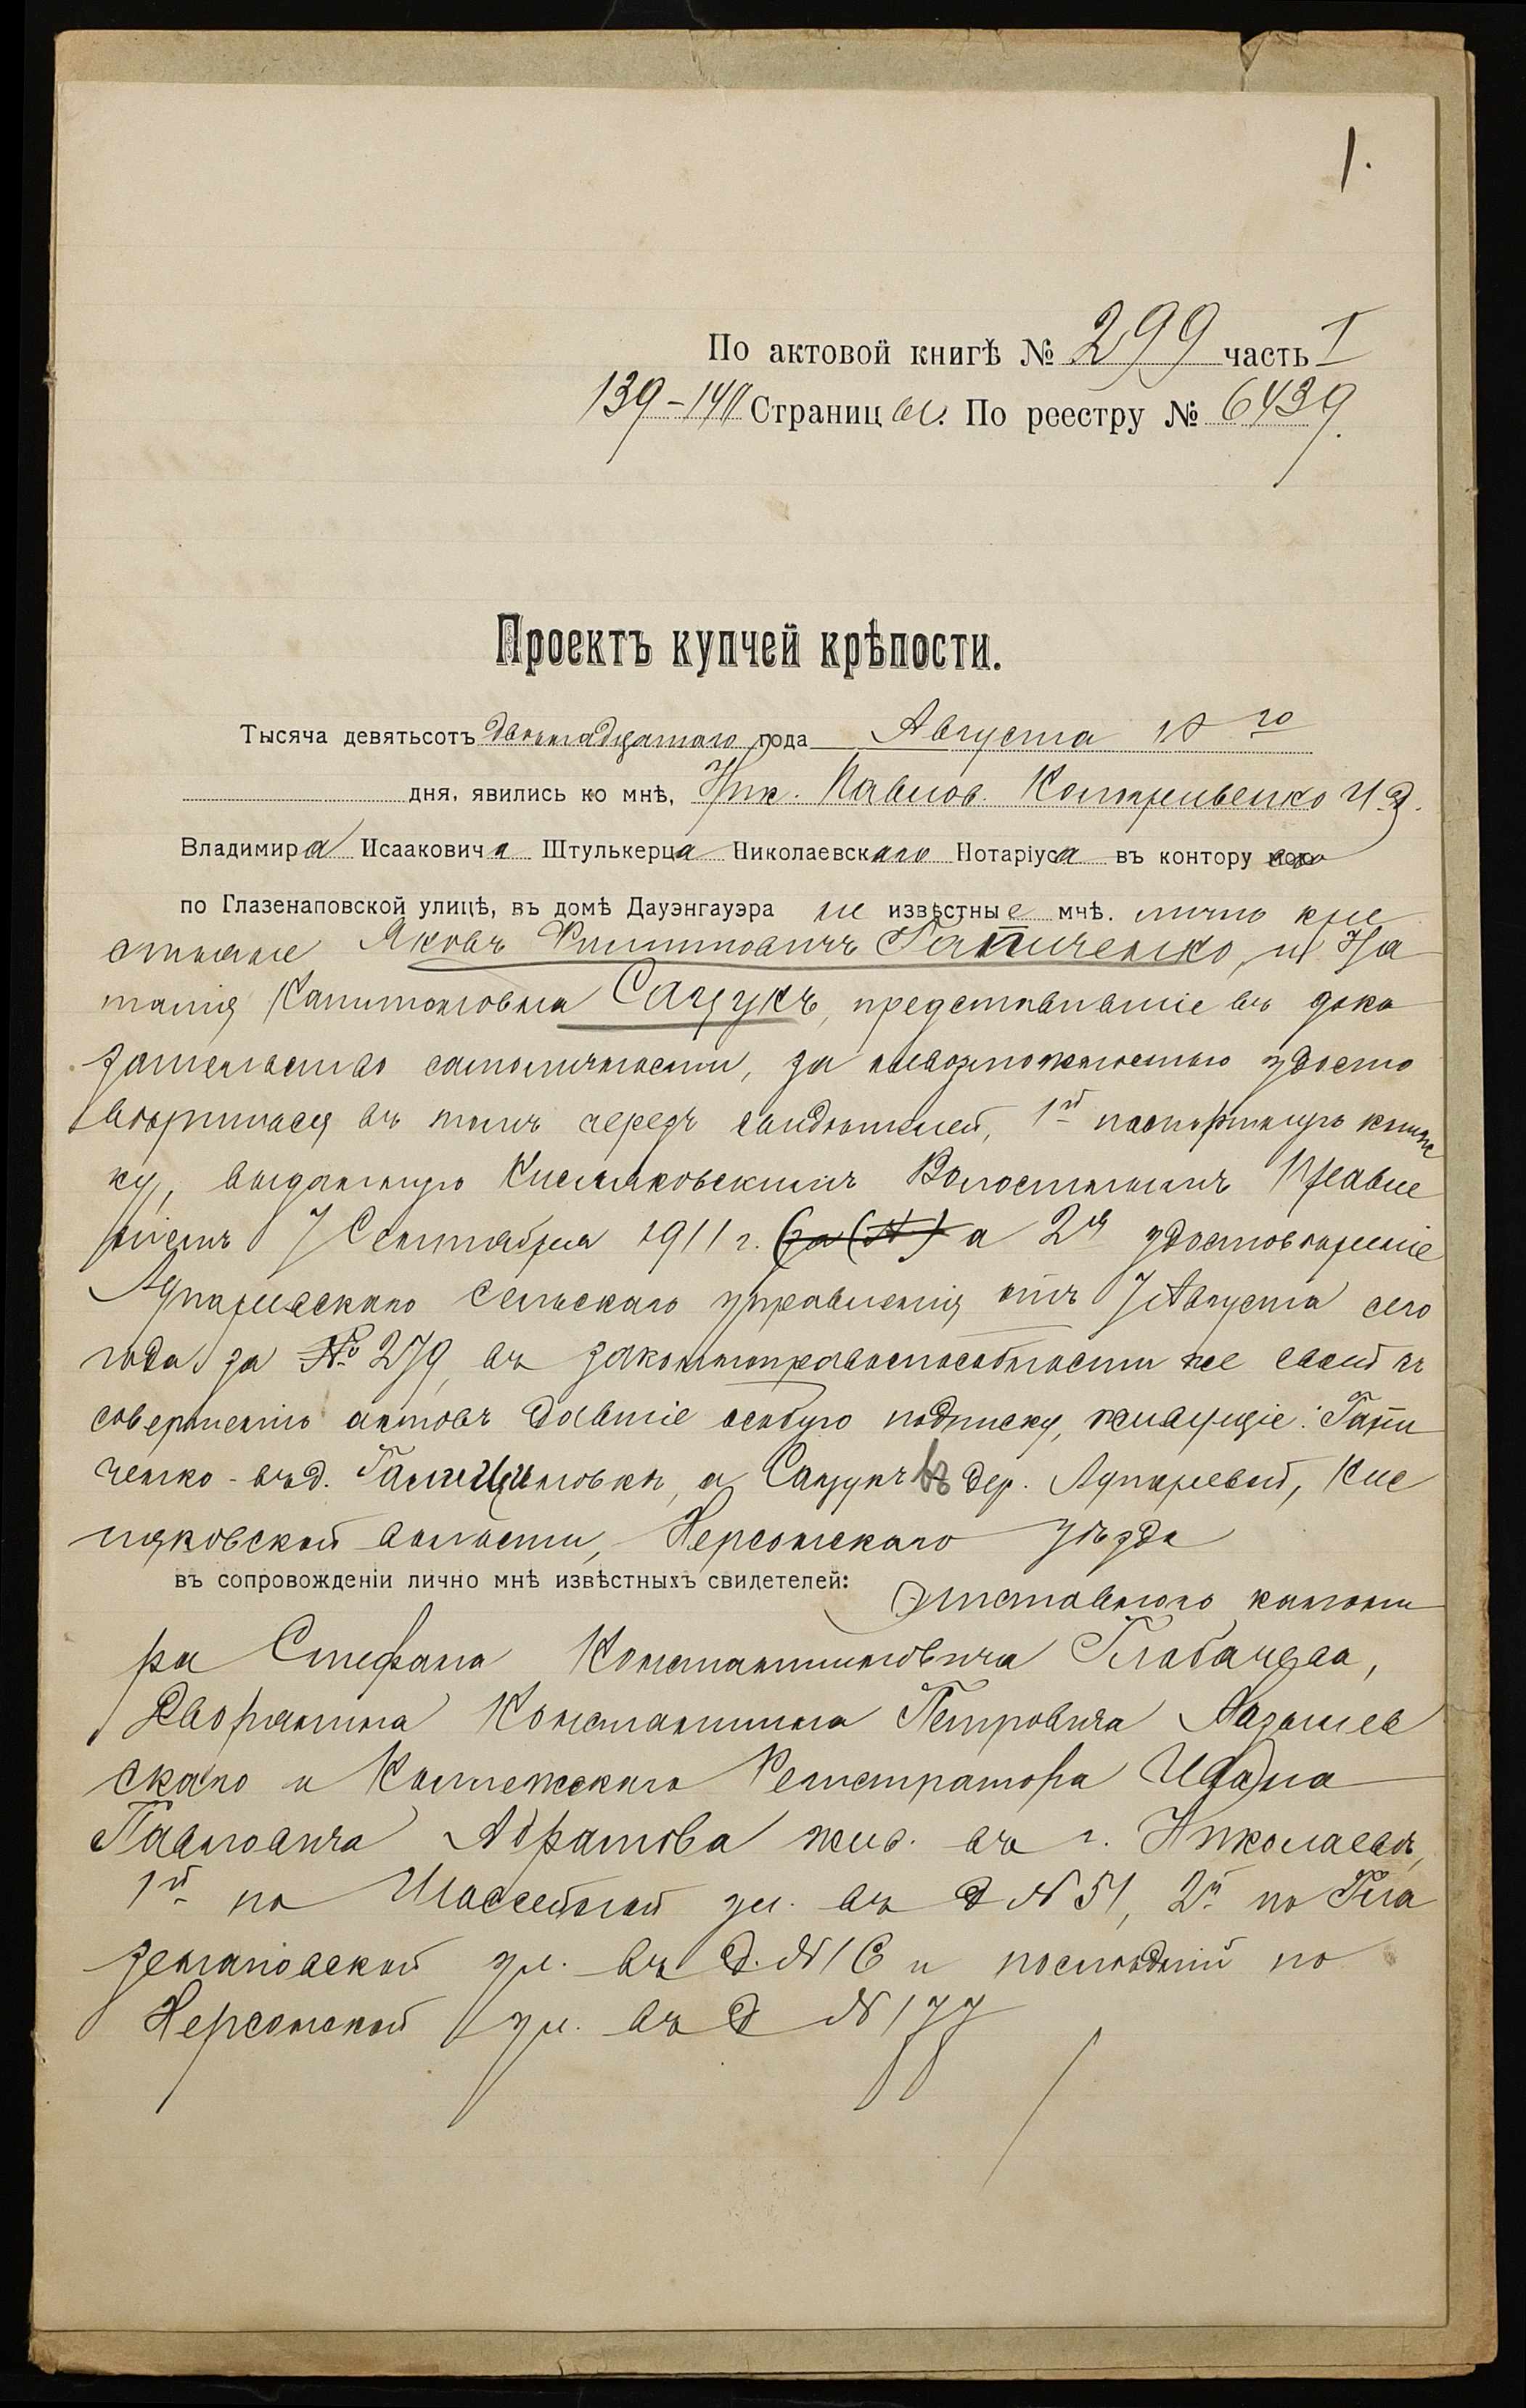 1.
По актовой книгѣ № 299 часть I
139-140 Страницы. По реестру № 6439.
Проектъ купчей крѣпости.
Тысяча девятьсотъ двѣнадцатаго года Августа 18 го
дня, явились ко мнѣ, Ник. Павлов. И. д.
Владимира Исааковича Штулькерца Николаевскаго Нотаріуса въ контору его
по Глазенаповской улицѣ, въ домѣ Дауэнгауэра не известные мнѣ. лично кре
стьяне Яковъ Филипповичъ Гапиченко, и На
талія Капитоновна Сацукъ, представившіе въ дока
зательство самоличности, за невозможностью удосто
вѣриться въ томъ черезъ свидѣтелей, 1й паспортную книж
ку, выданную Кисляковскимъ Волостнымъ Правле
ніемъ 7 Сентября 1911 г. (за (№) а 2я удостовѣреніе
Лупаревскаго сельскаго управленія отъ 7 Августа сего
года за № 279, въ законноправоспособности же своей къ
совершенію актовъ давшіе особую подписку, живущіе: Гапи
ченко - въ д. а Сацукъ въ дер. Лупаревой, Кис
ляковской волости, Херсонскаго уѣзда
въ сопровожденіи лично мнѣ извѣстныхъ свидетелей: Отставного канони
ра Стефана Константиновича Глабачева,
Дворянина Константина Петровича
скаго и Коллежскаго Регистратора Ивана
Павловича Абрамова жив. въ г. Николаевѣ,
1й по Шассейной ул. въ д № 51, 2й по Гла
зенаповской ул. въ д. № 16 и послѣдній по
Херсонской ул. въ д № 177